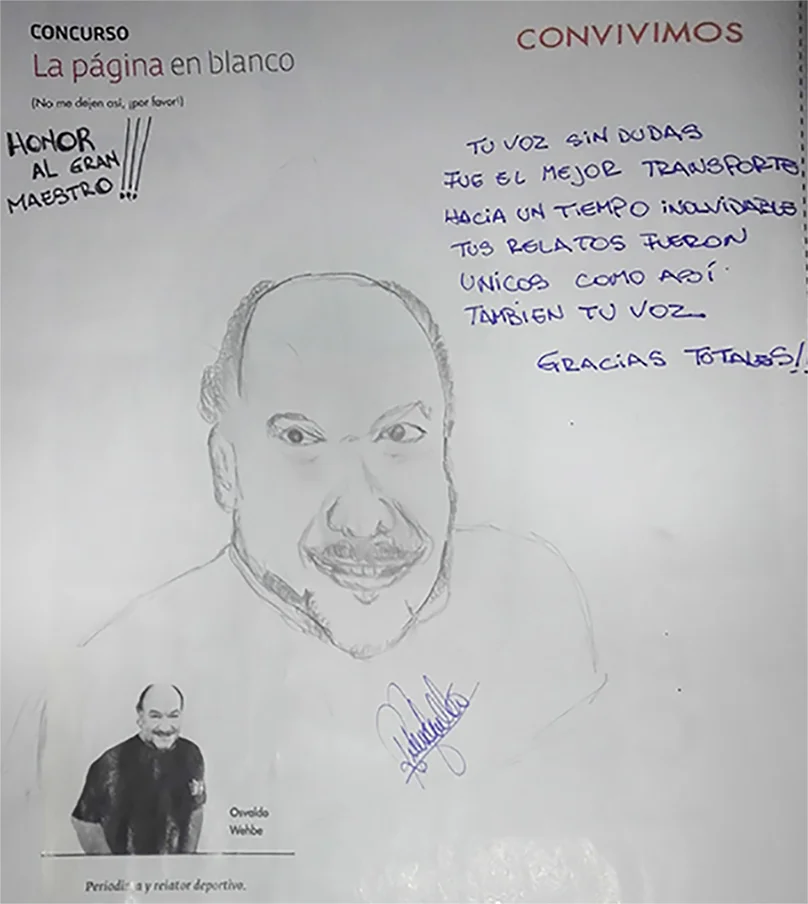 CONCURSO
La página en blanco
(No me dejen así, ¡por favor!)
CONVIVIMOS
HONOR
AL GRAN
MAESTRO!!!
TU VOZ SIN DUDAS
FUE EL MEJOR TRANSPORTE
HACIA UN TIEMPO INOLVIDABLE
TUS RELATOS FUERON
UNICOS COMO ASÍ
TAMBIEN TU VOZ.
GRACIAS TOTALES!!
Osvaldo
Wehbe
y relator deportivo.